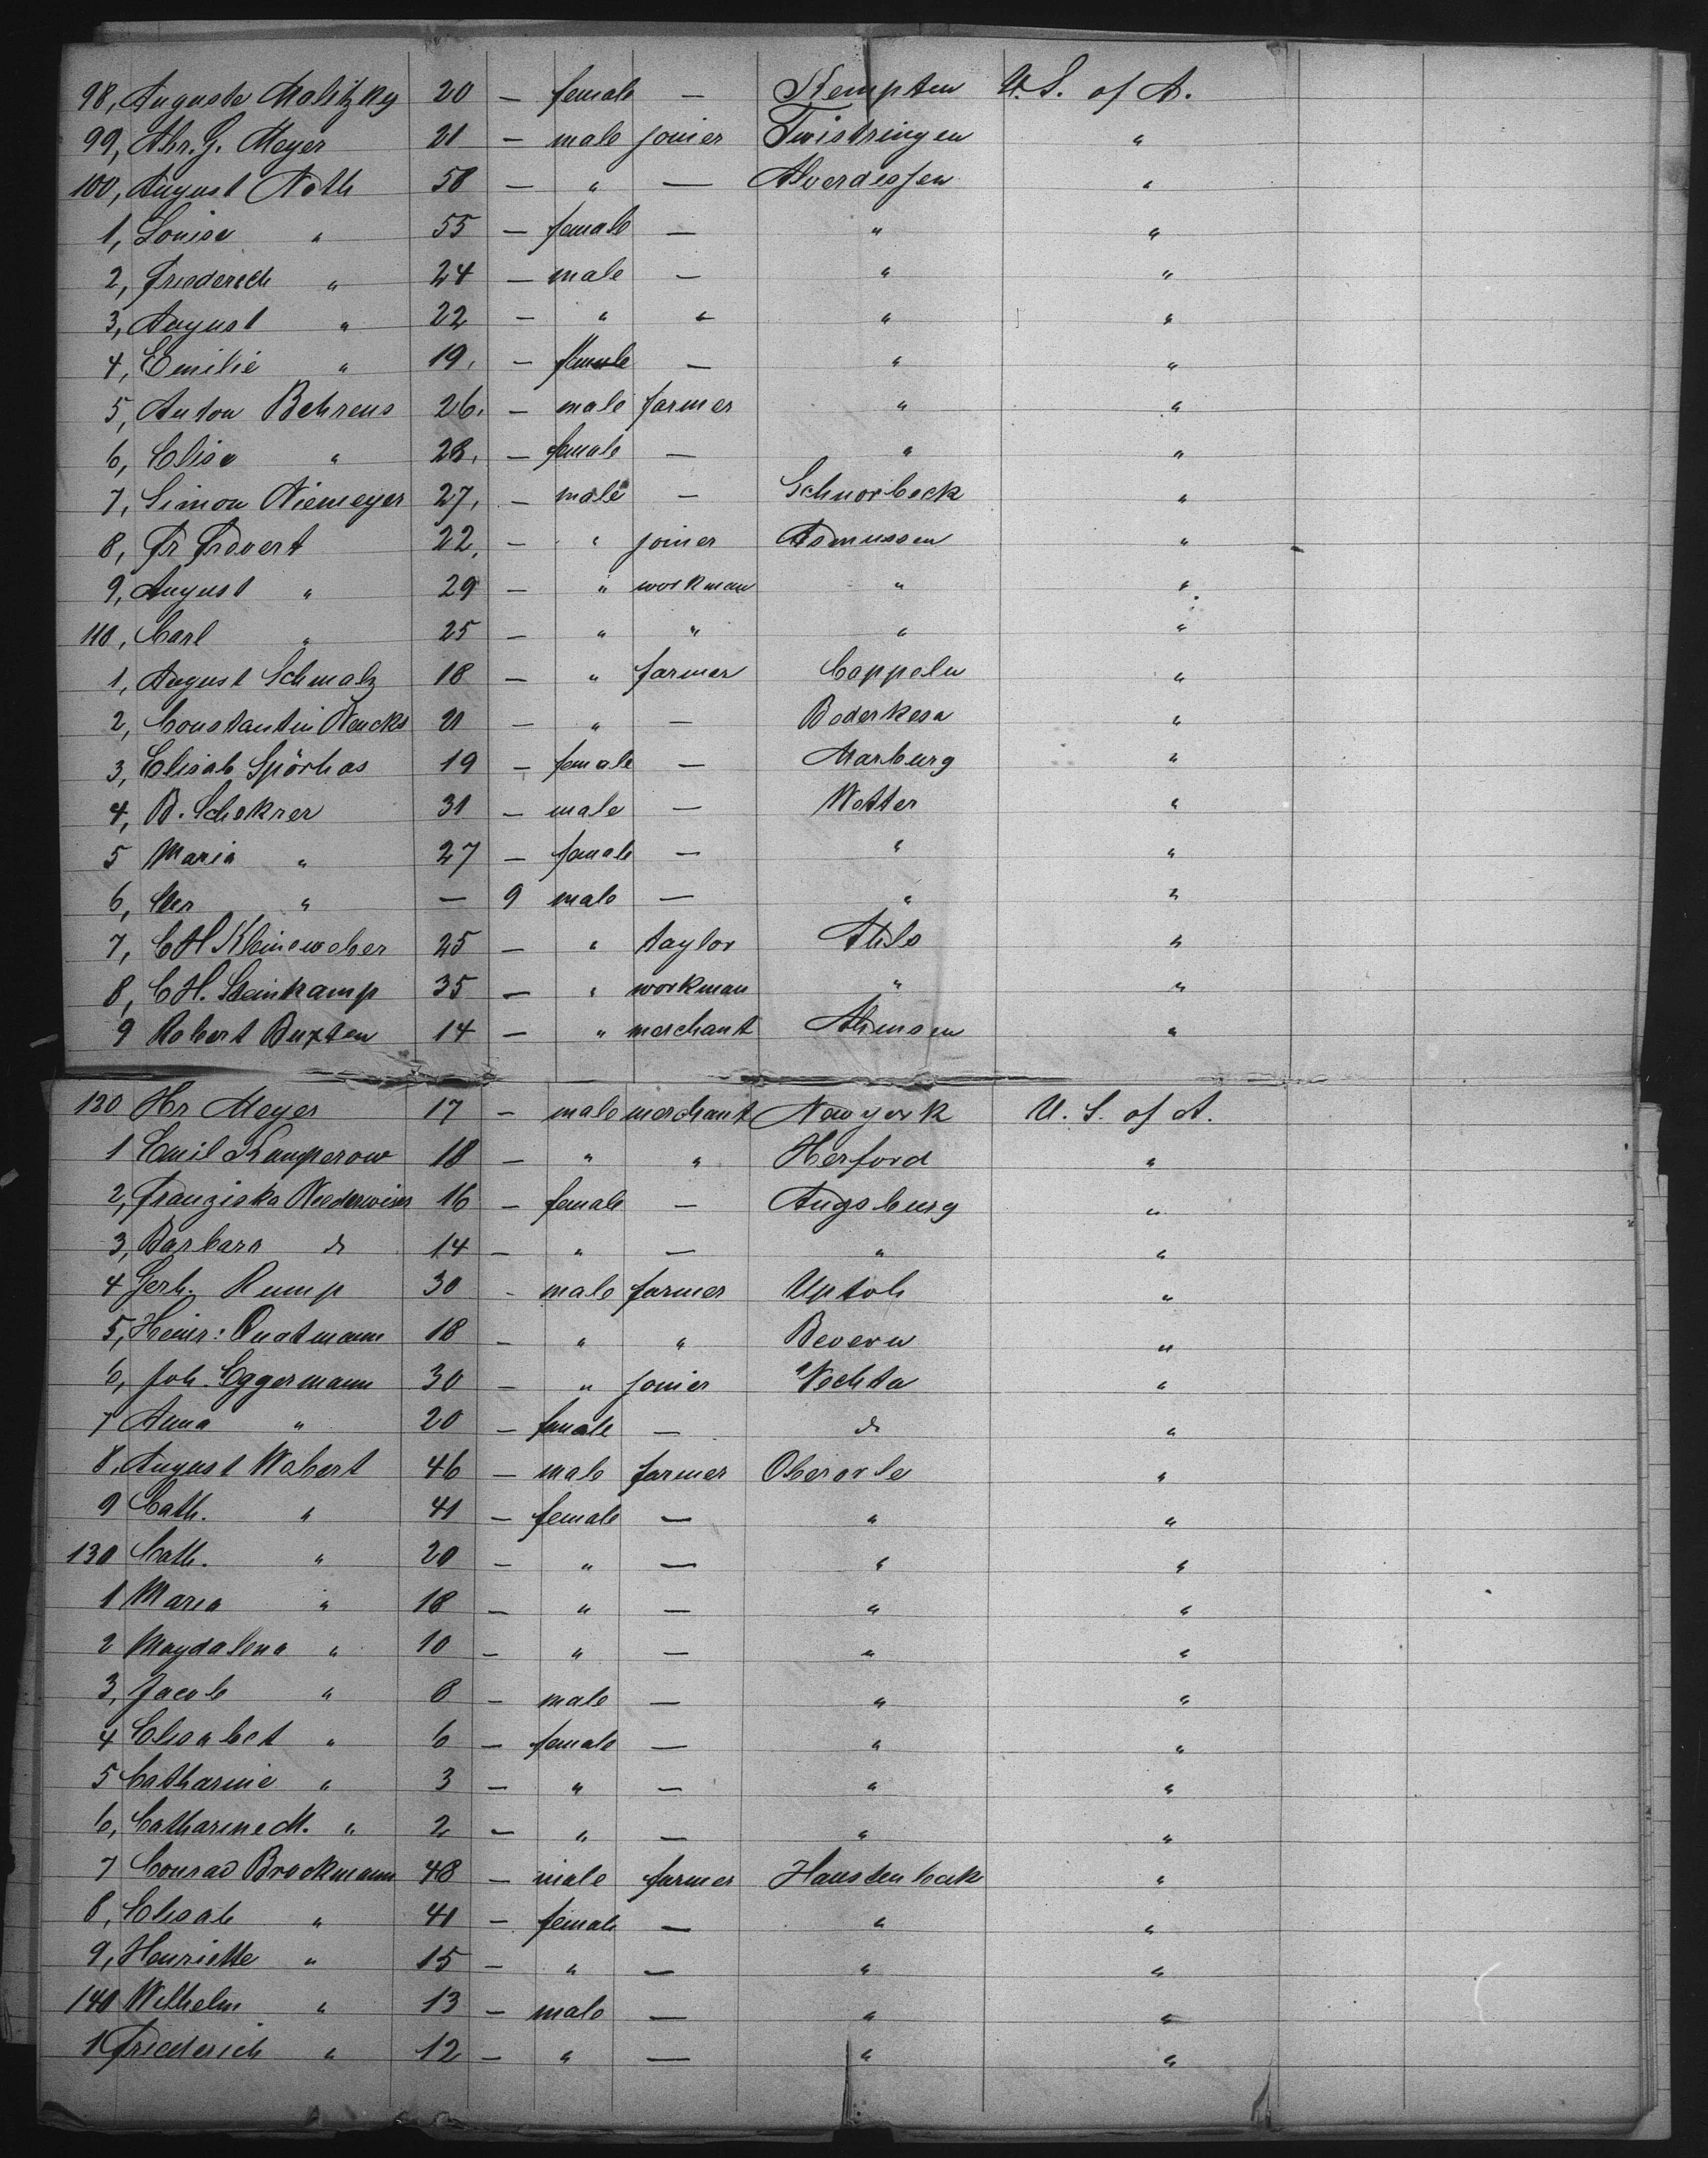 98, Auguste Malitzky 20 — female — Kempten U.S. of A.
99, Chr. G. Meyer 21 — male joiner Twistringen "
100, August Noth 58 — " — Alverdessen "
1, Louise " 55 — female — " "
2, Friederich " 24 — male — " "
3, August " 22 — " " " "
4, Emilie " 19. — female — " "
5, Anton Behrens 26. — male farmer " "
6, Elise " 28. — female — " "
7, Simon Niemeyer 27. — male — Schnorbeck "
8, Fr Frevert 22. — " joiner Asmussen "
9, August " 29 — " workman " "
110, Carl " 25 — " " " "
1, August Schmalz 18 — " farmer Cappeln "
2, Constantin 21 — " — Bederkesa "
3, Elisab Spörhas 19 — female — Marburg "
4, B. Schekrer 31 — male — Wetter "
5 Maria " 27 — female — " "
6, " — 9 male — " "
7, C H Kleineweber 25 — " taylor "
8, C H. Steinkamp 35 — " workman " "
9 Robert Buxten 14 — " merchant Ahmsen "
120 Hr Meyer 17 — male merchant Newyork U. S. of A.
1 Emil Kamperow 18 — " " Herford "
2, Franziska Niederwieser 16 — female — Augsburg "
3, Barbara do 14 — " — " "
4 Gerh. Rump 30 - male farmer Uptoh "
5, Heinr: Quatmann 18 — " " Bevern "
6, Joh. Eggermann 30 — " joiner Vechta "
7 Anna " 20 — female — do "
8, August Wabert 46 — male farmer Oberorle "
9 Cath. " 41 — female — " "
130 Cath. " 20 — " — " "
1 Maria " 18 — " — " "
2 Magdalena " 10 — " — " "
3, Jacob " 8 — male — " "
4 Elisabet " 6 — female — " "
5 Catharine " 3 — " — " "
6, Catharine M. " 2 — " — " "
7 Conrad Brockmann 48 — male farmer Haustenbeck "
8, Elisab " 41 — female — " "
9, Henriette " 15 — " — " "
140 Wilhelm " 13 — male — " "
1 Friederich " 12 — " — " "